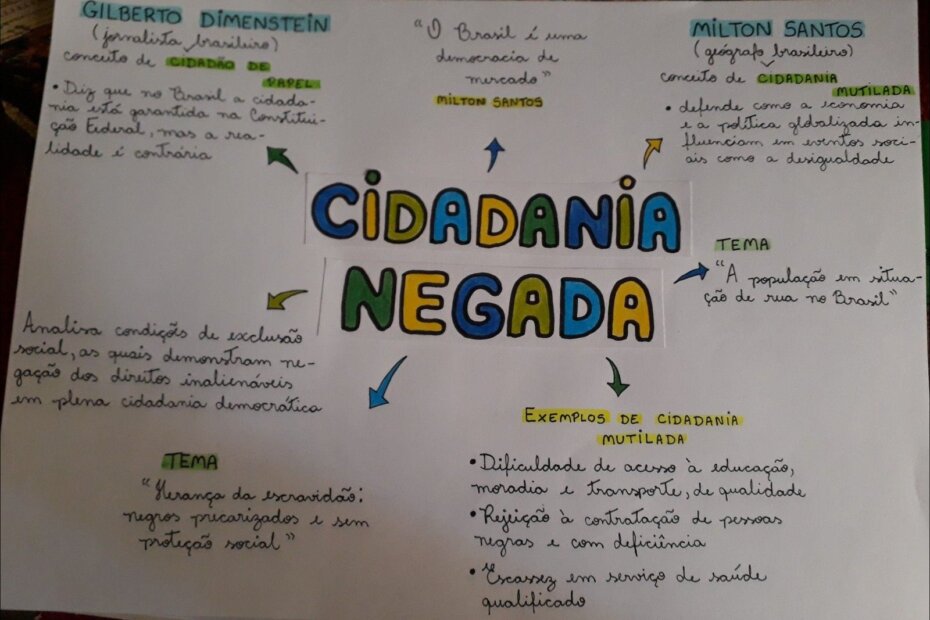 GILBERTO DIMENSTEIN
(jornalista brasileiro)
conceito de CIDADÃO DE
PAPEL
• Diz que no Brasil a cidada-
nia está garantida na Constitui-
ção Federal, mas a rea-
lidade é contrária
"O Brasil é uma
democracia de
mercado"
MILTON SANTOS
MILTON SANTOS
(geógrafo brasileiro)
conceito de CIDADANIA
MUTILADA
• defende como a economia
e a política globalizada in-
fluenciam em eventos soci-
ais como a desigualdade
CIDADANIA
NEGADA
TEMA
"A população em situa-
ção de rua no Brasil"
Analisa condições de exclusão
social, as quais demonstram ne-
gação dos direitos inalienáveis
em plena cidadania democrática
TEMA
"Herança da escravidão:
negros precarizados e sem
proteção social"
EXEMPLOS DE CIDADANIA
MUTILADA
• Dificuldade de acesso à educação,
moradia e transporte, de qualidade
• Rejeição à contratação de pessoas
negras e com deficiência
• Escassez em serviço de saúde
qualificado